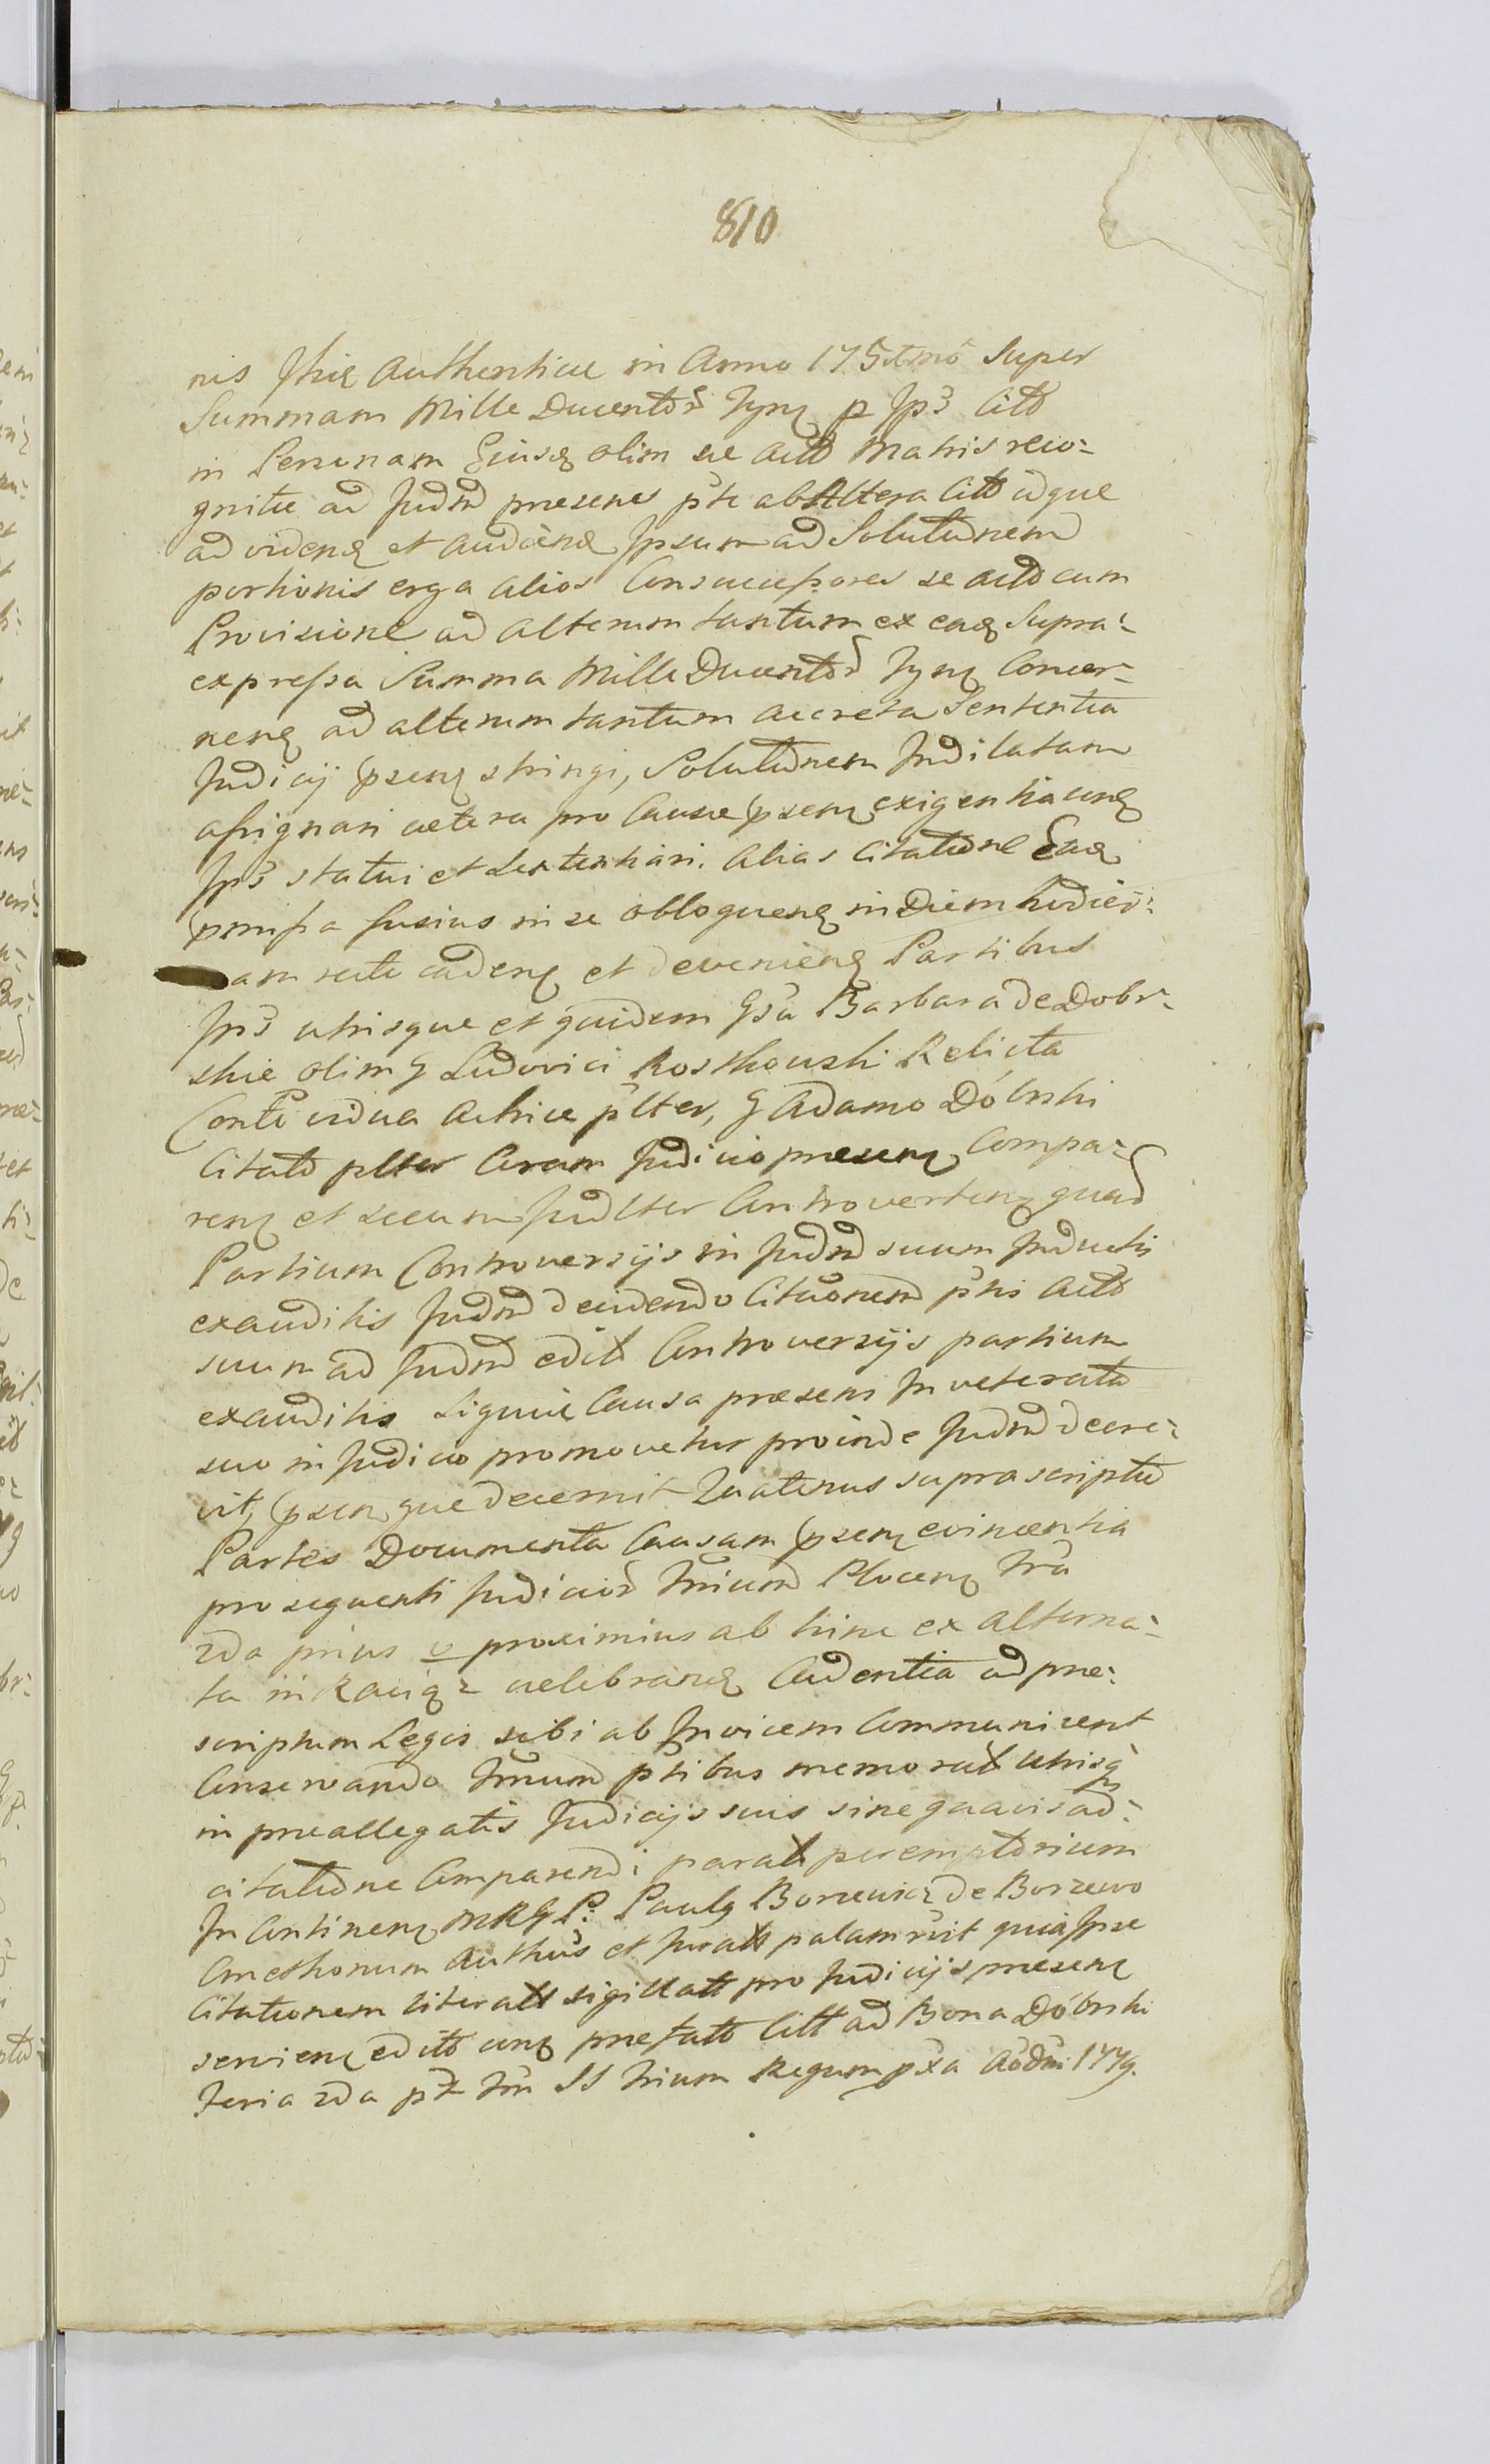 810
nis Authenticae in Anno 175 Super
Summam Mille Ducentor Fpnꝫ p Citt
in Personam Ejusꝗ olim se actt Matris reco-
gnitae ad Judm praesenes ab Altera Citt idque
ad videnꝗ et Audienꝗ Ipsum ad Solutionem
portionis erga alios Consuccessores se actt cum
Provisione ad alterum tantum ex eaꝗ Supra-
expressa Summa Mille Ducentor Concer-
nenꝗ ad alterum tantum accreta Sententia
Judicij pnsenꝫ stringi, Solutionem Indilatam
assignari caetera pro Causae psenꝫ exigentia
statui et Sententiari. Alias Citatione Eaꝗ
pmissa fusius in se obloquenꝗ in Diem hodier-
am recte cadenꝫ et devenienꝗ Partibus
utrisque et quidem Gsa Barbara de Dobr-
skie olim G Ludovici Rostkowski Relicta
vidua Actrice plter, G Adamo Dóbrski
Citato plter Coram Judicio praesenꝫ Compa-
renꝫ et secum Judlter Controvertenꝫ quad
Partium Controversijs in Judm suum Inductis
exauditis Judm decidendo Citaonem Actt
suum ad Judm edit Controversijs partium
exauditis Siquid Causa praesens Inveterata
suo in Judicio promovetur proinde Judm decre-
vit, psenque decernit Quatenus suprascriptae
Partes Documenta Causam psenꝫ evincentia
pro sequenti Judicior Plocenꝫ
2da prius v proximius ab hinc ex alterna-
ta in Raciąż celebranꝗ Cadentia ad prae-
scriptum Legis sibi ab Invicem Communicent
Conservando ptibus memorat Utrisꝗ
in praeallegatis Judicijs suis sine quavis ad-
citatione Comparendi parat peremptorium
In Continenꝫ MRGP: Paulꝗ Borzewicz de Borzewo
Cmethonum Authus et Jurats palam rvit quia Ipse
Citationem literatt sigillatt pro Judicijs praesenꝫ
servienꝫ editt praefatt Citt ad Bona Dóbrski
Feria 2da SS Trium Regum pxa Aodni 1779.